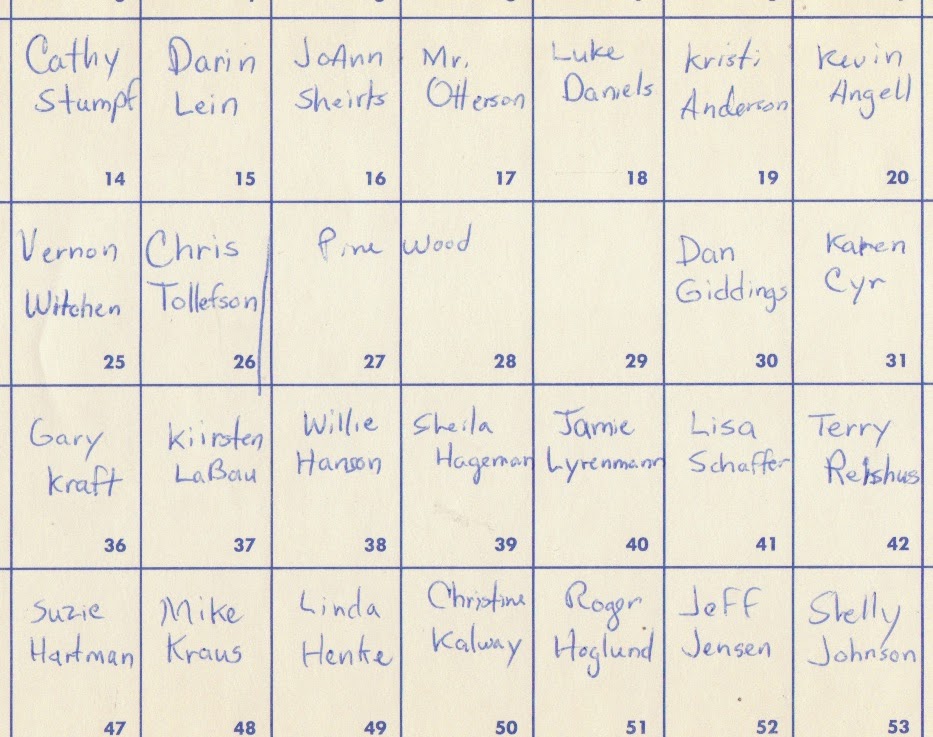 Cathy Stumpf 14
Darin Lein 15
JoAnn Sheirts 16
Mr. Otterson 17
Luke Daniels 18
Kristi Anderson 19
Kevin Angell 20
Vernon Witchen 25
Chris Tollefson 26
Pine Wood 27 28
29
Dan Giddings 30
Karen Cyr 31
Gary Kraft 36
Kiirsten LaBau 37
Willie Hanson 38
Sheila Hageman 39
Jamie Lyrenmann 40
Lisa Schaffer 41
Terry Reishus 42
Suzie Hartman 47
Mike Kraus 48
Linda Henke 49
Christine Kalway 50
Roger Hoglund 51
Jeff Jensen 52
Shelly Johnson 53